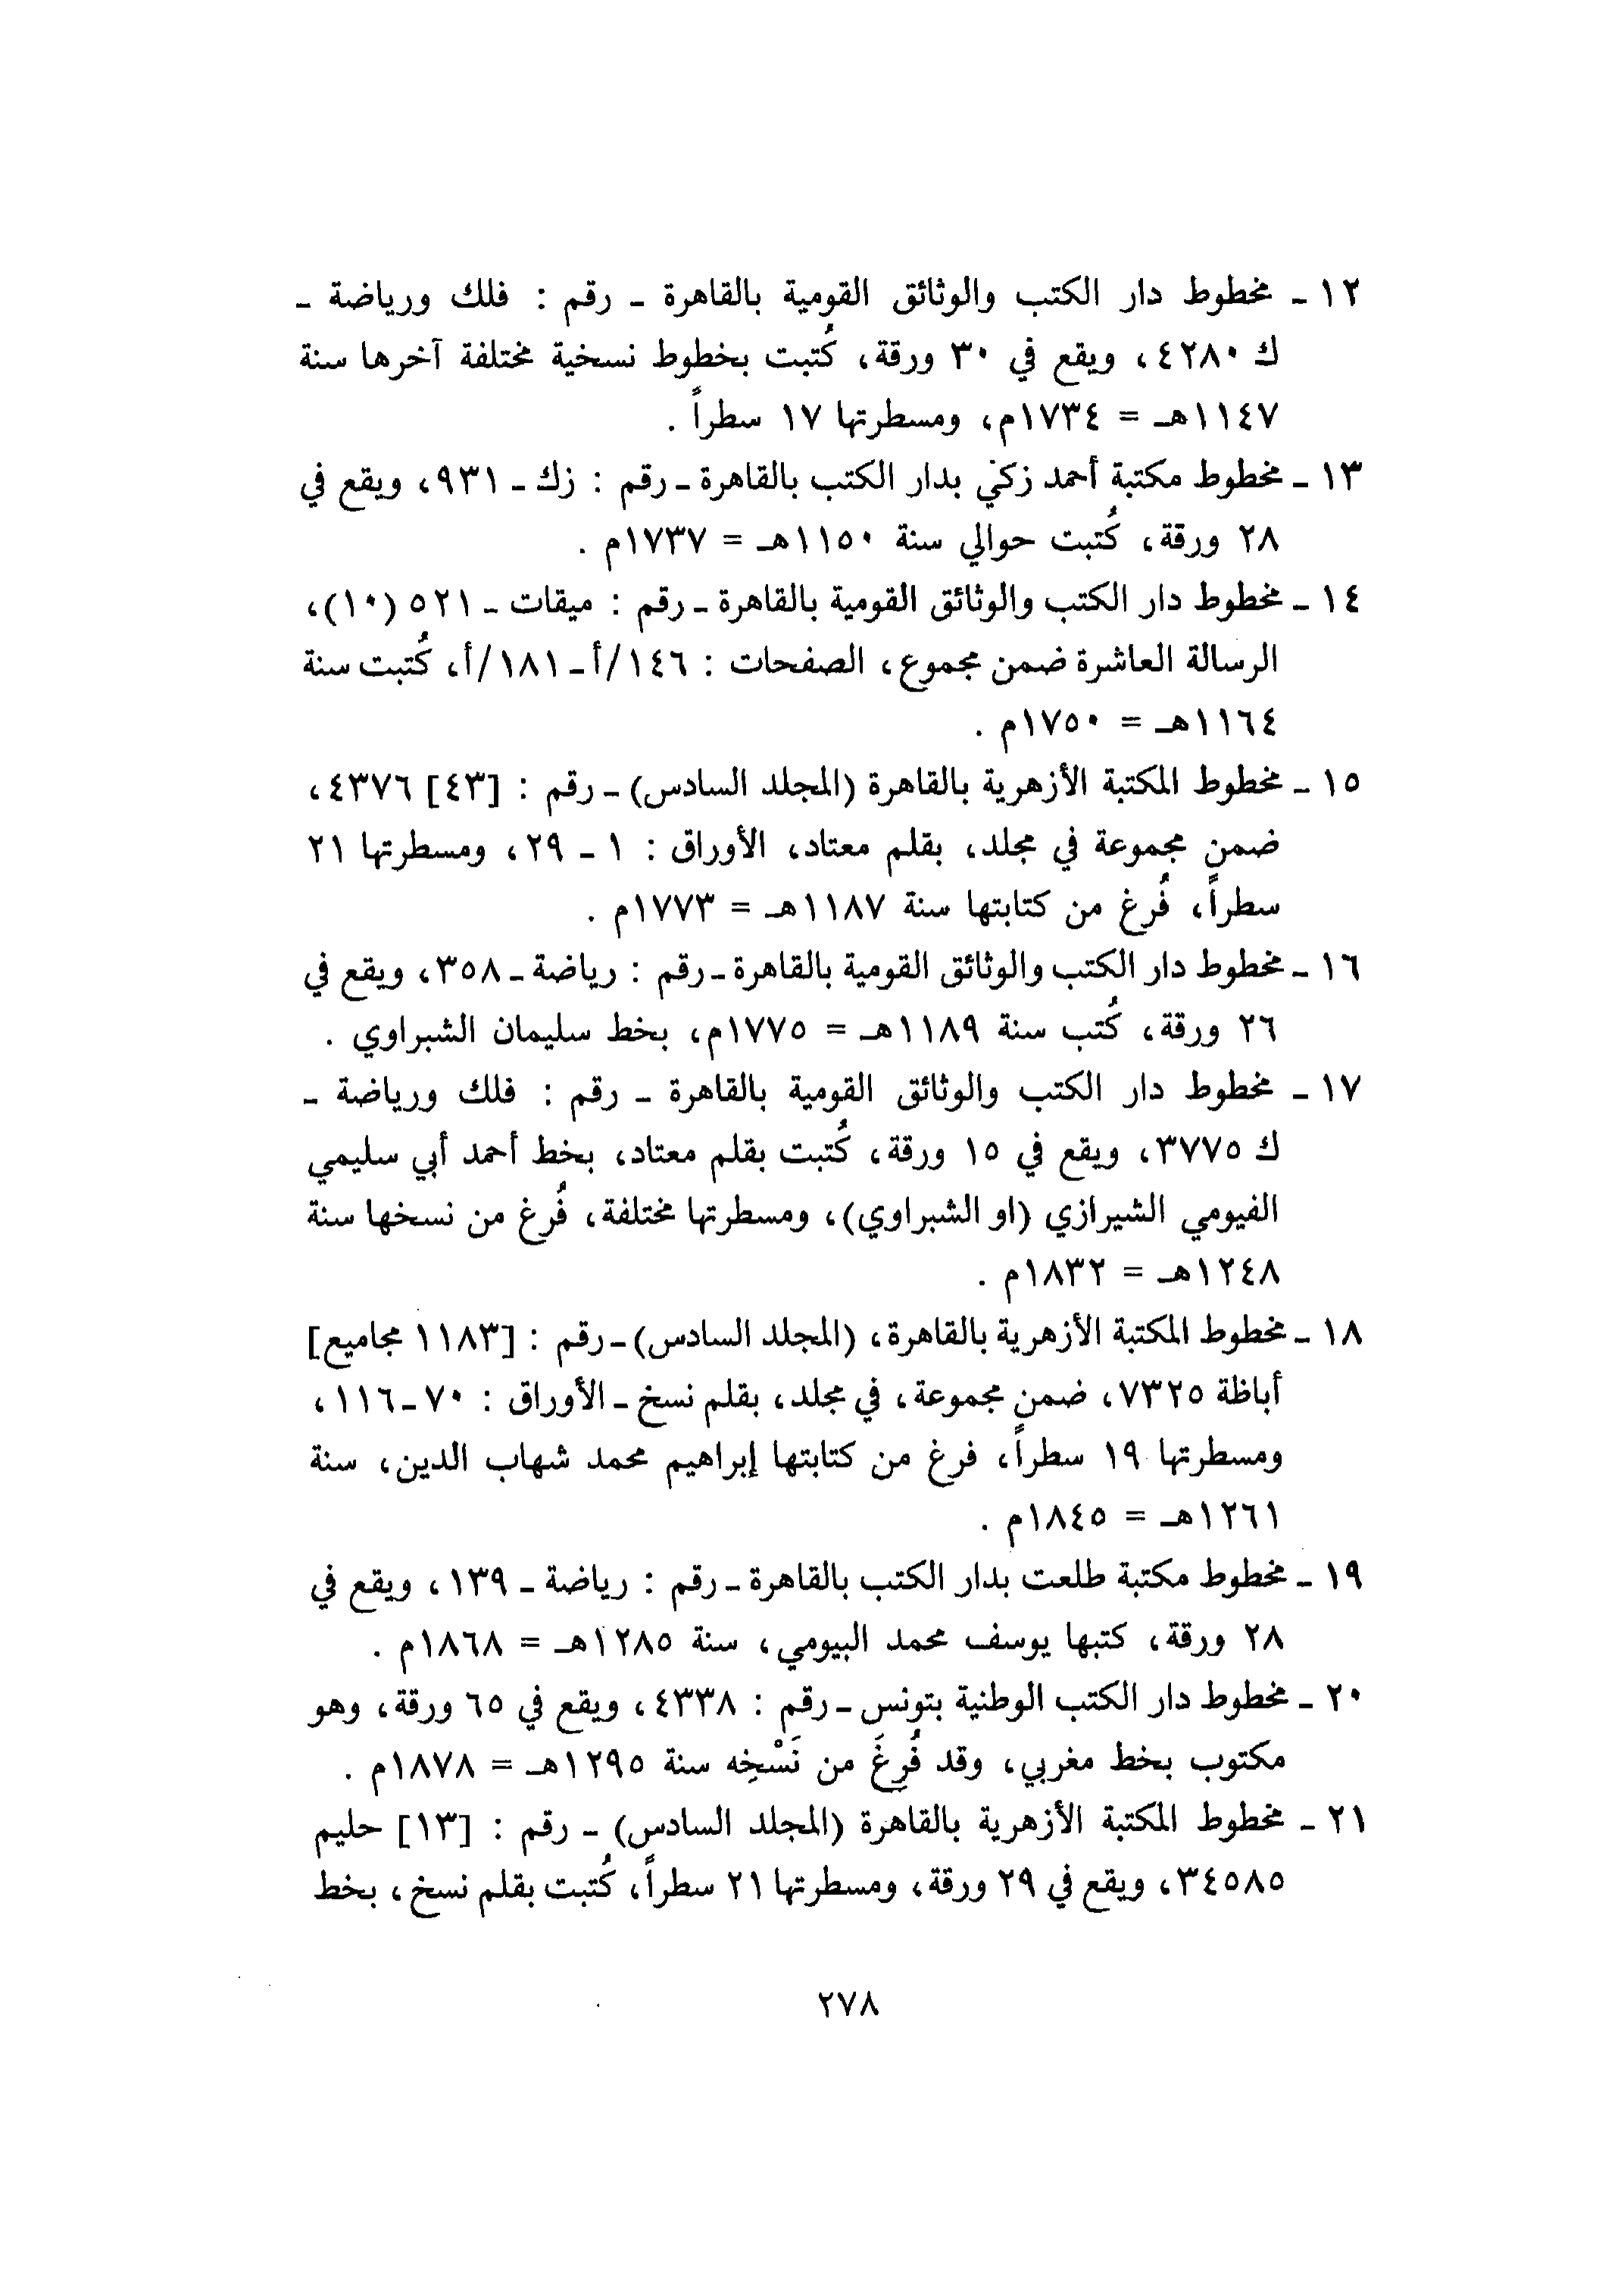 ١٢ ـ مخطوط دار الكتب والوثائق القومية بالقاهرة ـ رقم : فلك ورياضة ـ
ك ٤٢٨٠، ويقع في ٣٠ ورقة، كُتبت بخطوط نسخية مختلفة آخرها سنة
١١٤٧هـ = ١٧٣٤م، ومسطرتها ١٧ سطراً .
١٣ ـ مخطوط مكتبة أحمد زكي بدار الكتب بالقاهرة ـ رقم : زك ـ ٩٣١، ويقع في
٢٨ ورقة، كُتبت حوالي سنة ١١٥٠هـ = ١٧٣٧م .
١٤ ـ مخطوط دار الكتب والوثائق القومية بالقاهرة ـ رقم : ميقات ـ ٥٢١ (١٠)،
الرسالة العاشرة ضمن مجموع، الصفحات : ١٤٦/أ ـ ١٨١/أ، كُتبت سنة
١١٦٤هـ = ١٧٥٠م .
١٥ ـ مخطوط المكتبة الأزهرية بالقاهرة (المجلد السادس) ـ رقم : [٤٣] ٤٣٧٦،
ضمن مجموعة في مجلد، بقلم معتاد، الأوراق : ١ ـ ٢٩، ومسطرتها ٢١
سطراً، فُرغ من كتابتها سنة ١١٨٧هـ = ١٧٧٣م .
١٦ ـ مخطوط دار الكتب والوثائق القومية بالقاهرة ـ رقم : رياضة ـ ٣٥٨، ويقع في
٢٦ ورقة، كُتب سنة ١١٨٩هـ = ١٧٧٥م، بخط سليمان الشبراوي .
١٧ ـ مخطوط دار الكتب والوثائق القومية بالقاهرة ـ رقم : فلك ورياضة ـ
ك ٣٧٧٥، ويقع في ١٥ ورقة، كُتبت بقلم معتاد، بخط أحمد أبي سليمي
الفيومي الشيرازي (او الشبراوي)، ومسطرتها مختلفة، فُرغ من نسخها سنة
١٢٤٨هـ = ١٨٣٢م .
١٨ ـ مخطوط المكتبة الأزهرية بالقاهرة، (المجلد السادس) ـ رقم : [١١٨٣ مجاميع]
أباظة ٧٣٢٥، ضمن مجموعة، في مجلد، بقلم نسخ ـ الأوراق : ٧٠ ـ ١١٦،
ومسطرتها ١٩ سطراً، فرغ من كتابتها إبراهيم محمد شهاب الدين، سنة
١٢٦١هـ = ١٨٤٥م .
١٩ ـ مخطوط مكتبة طلعت بدار الكتب بالقاهرة ـ رقم : رياضة ـ ١٣٩، ويقع في
٢٨ ورقة، كتبها يوسف محمد البيومي، سنة ١٢٨٥هـ = ١٨٦٨م .
٢٠ ـ مخطوط دار الكتب الوطنية بتونس ـ رقم : ٤٣٣٨، ويقع في ٦٥ ورقة، وهو
مكتوب بخط مغربي، وقد فُرِغَ من نَسْخِه سنة ١٢٩٥هـ = ١٨٧٨م .
٢١ ـ مخطوط المكتبة الأزهرية بالقاهرة (المجلد السادس) ـ رقم : [١٣] حليم
٣٤٥٨٥، ويقع في ٢٩ ورقة، ومسطرتها ٢١ سطراً، كُتبت بقلم نسخ، بخط
٢٧٨